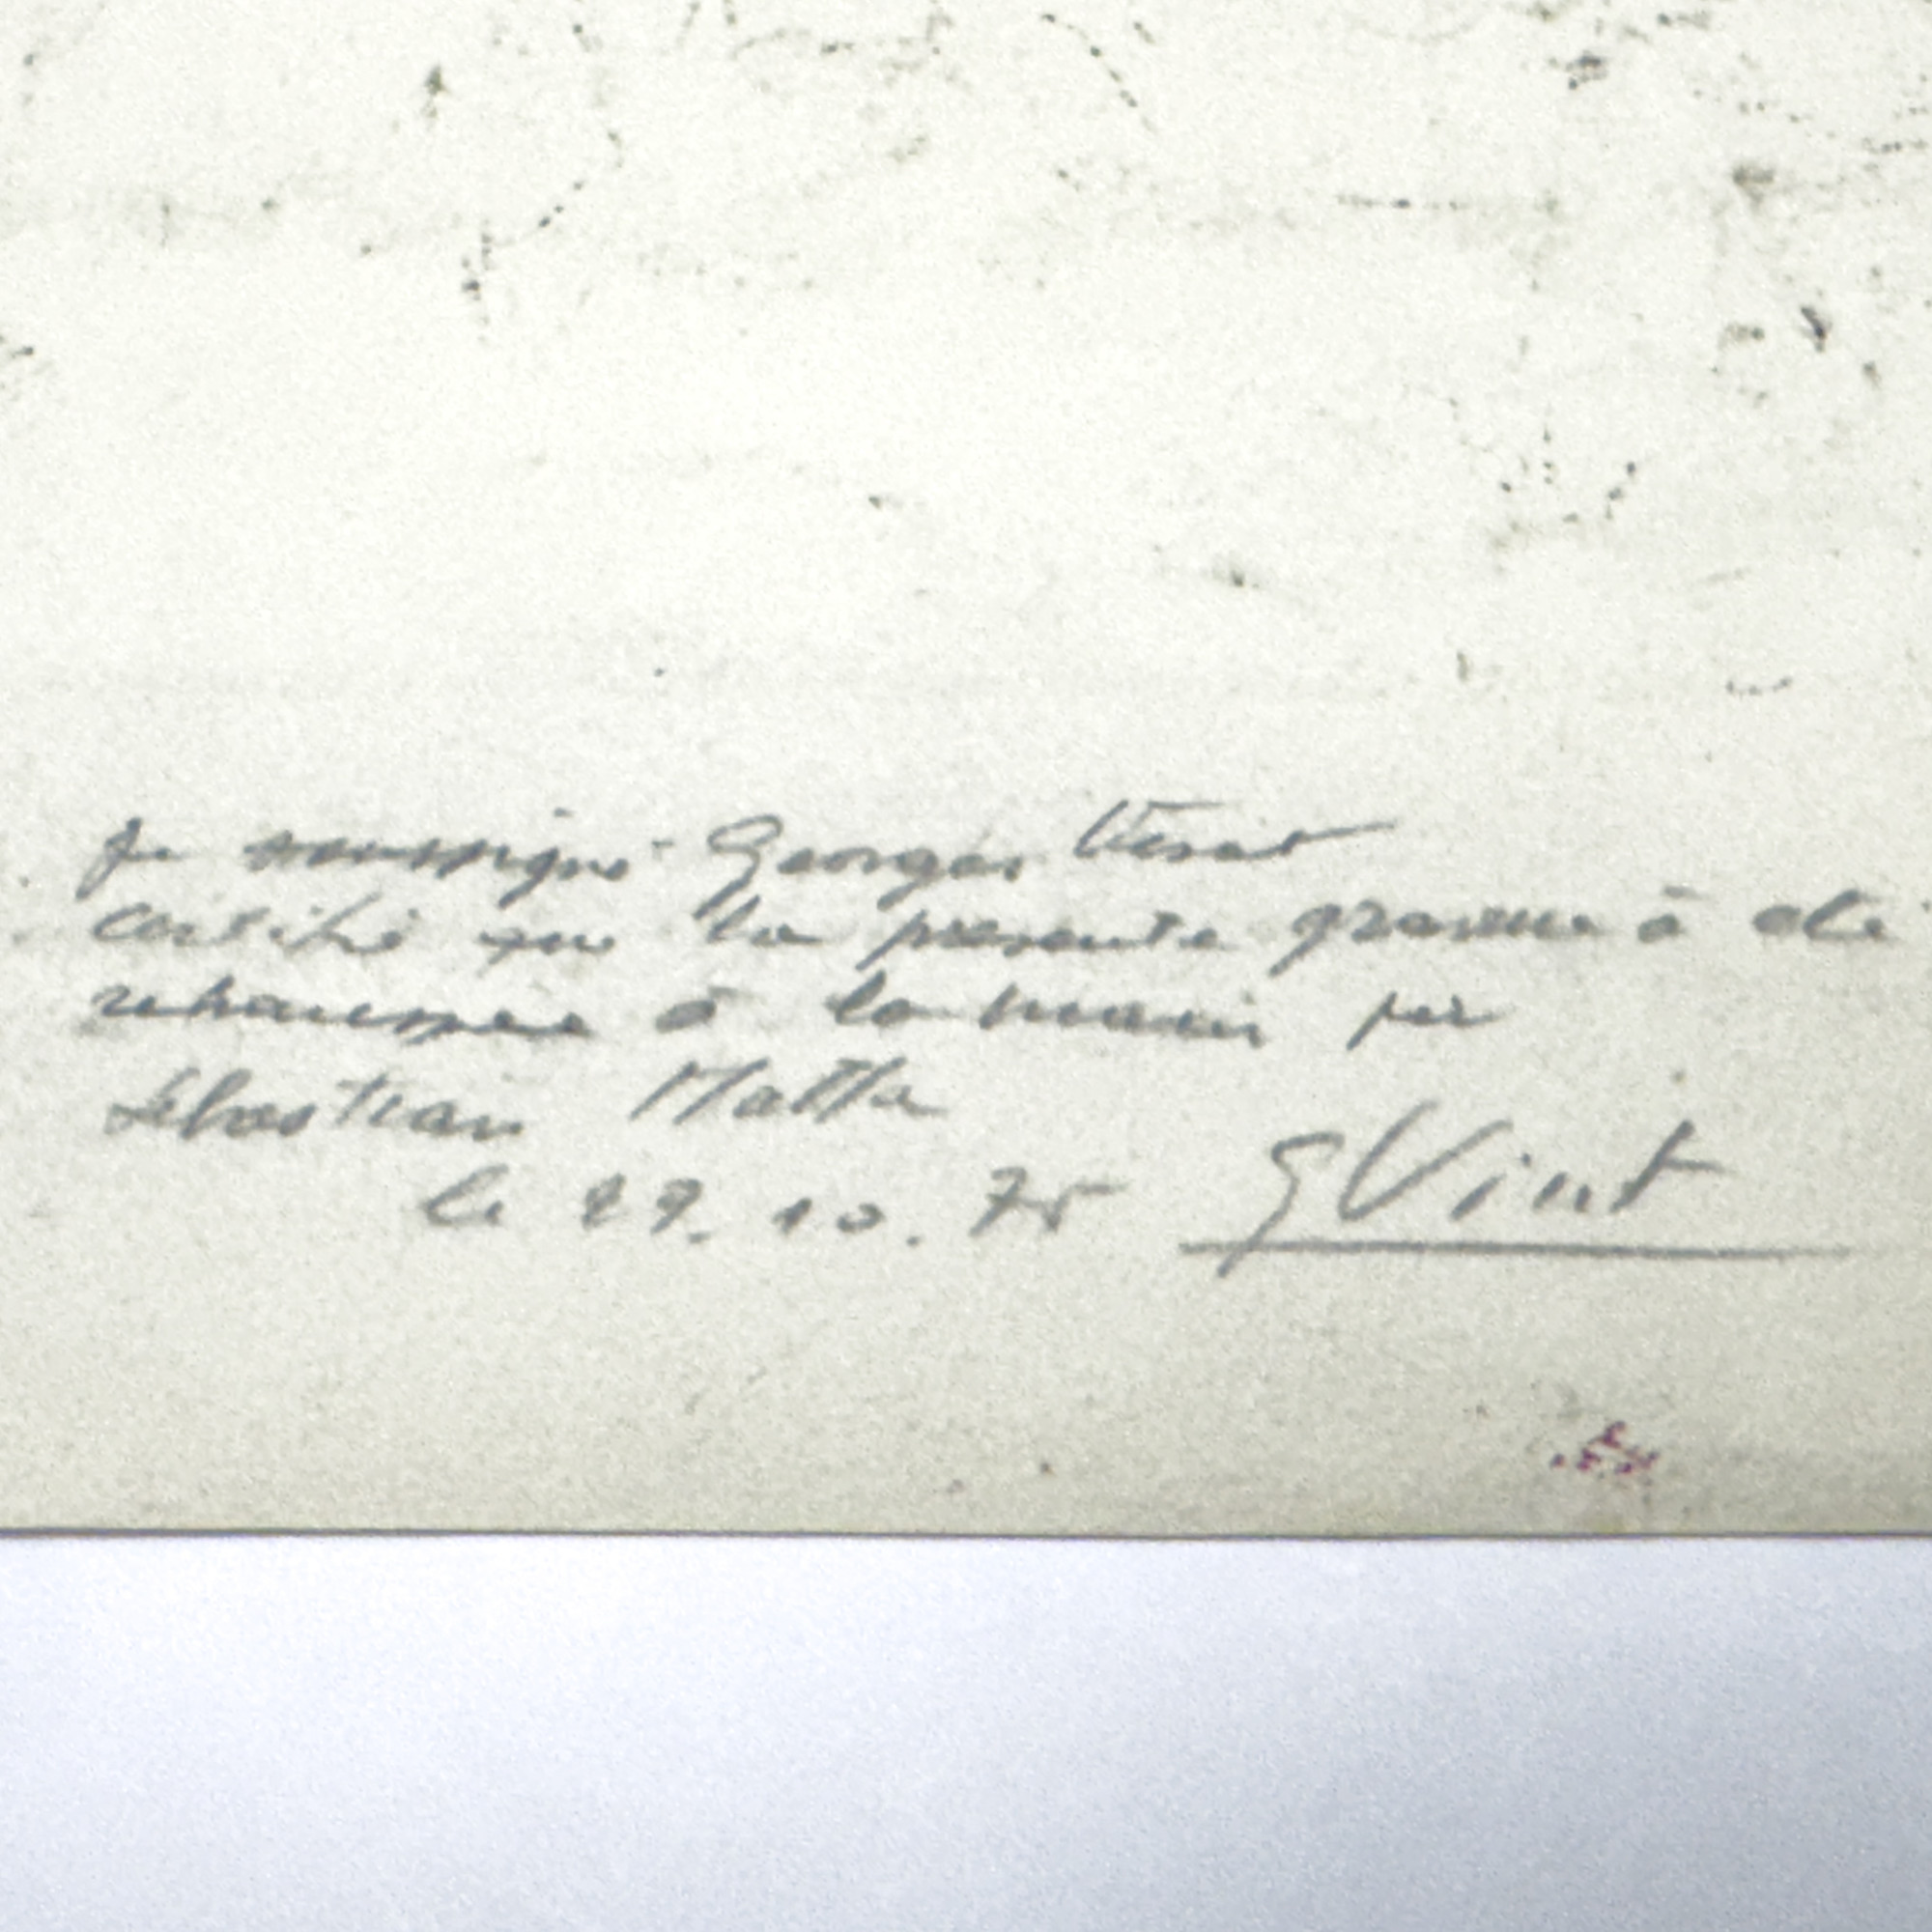 Je soussigné Georges Visat
certifie que la présente gravure à été
rehaussée à la main par
Sébastian Matta
le 29. 10. 75 GVisat